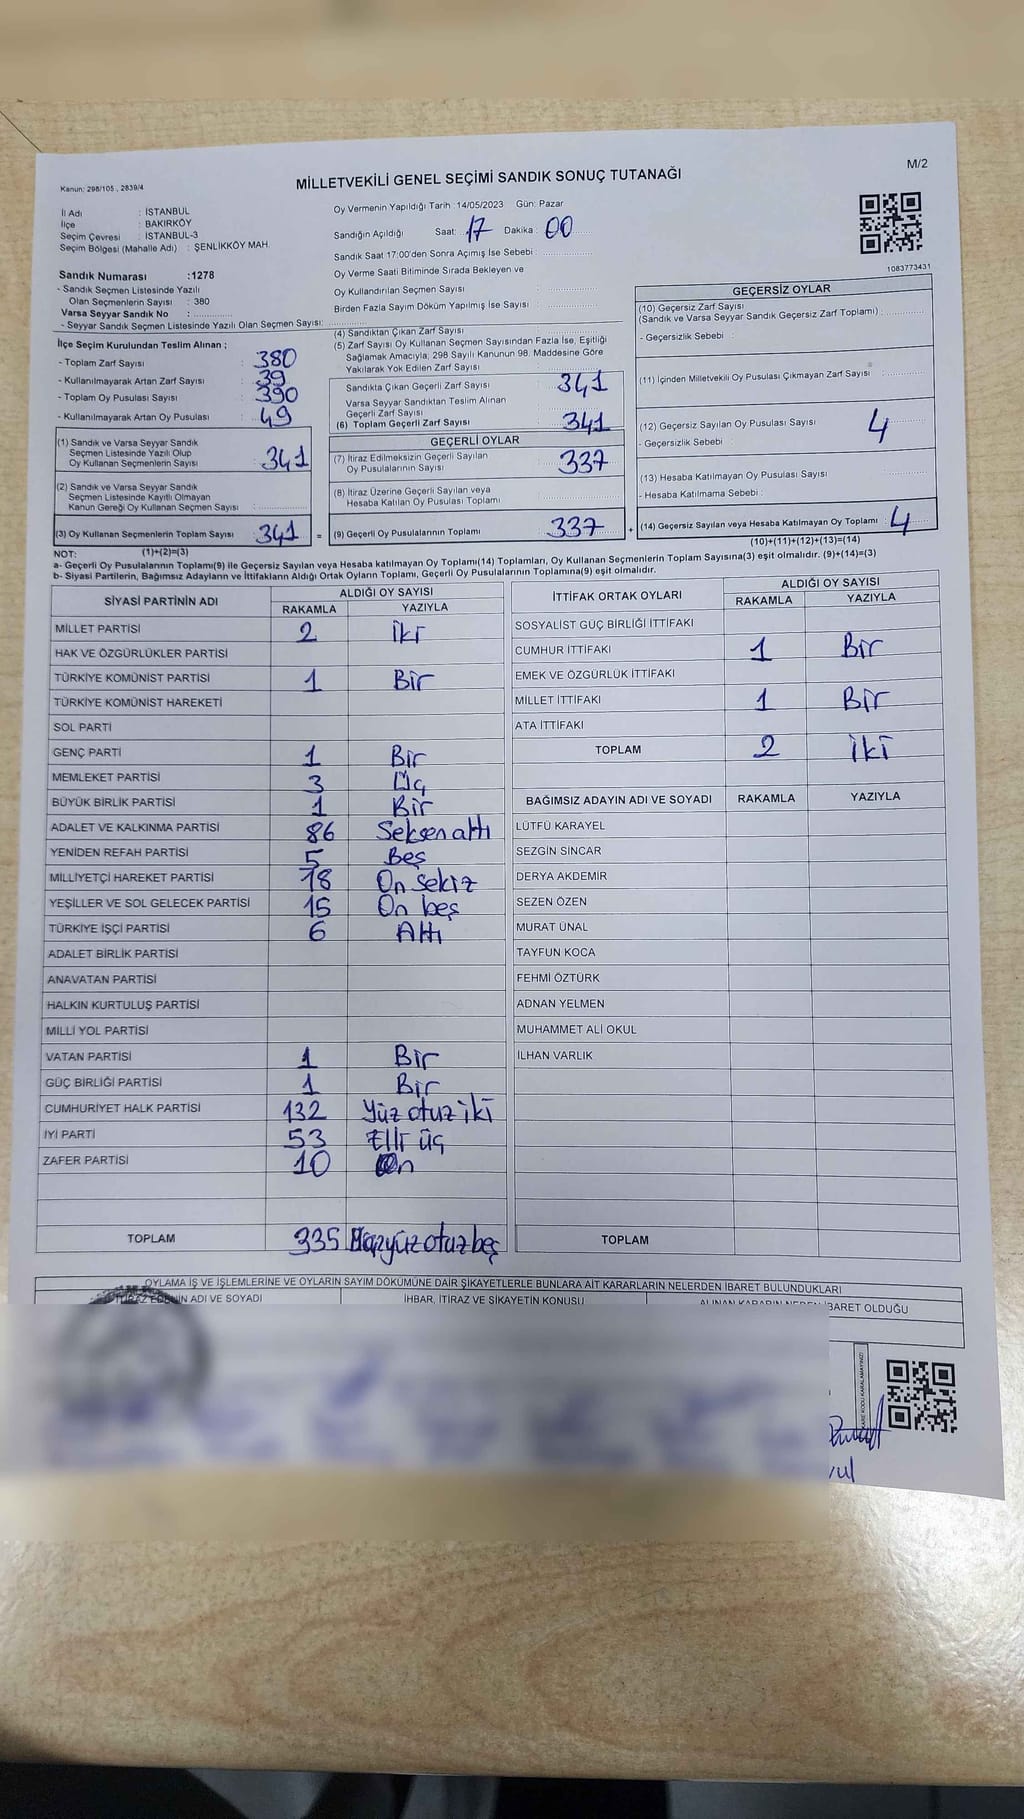 M/2
Kanun: 298/105 , 2839/4
MİLLETVEKİLİ GENEL SEÇİMİ SANDIK SONUÇ TUTANAĞI
İl Adı : İSTANBUL
İlçe : BAKIRKÖY
Seçim Çevresi : İSTANBUL-3
Seçim Bölgesi (Mahalle Adı) : ŞENLİKKÖY MAH.
Sandık Numarası :1278
- Sandık Seçmen Listesinde Yazılı
Olan Seçmenlerin Sayısı : 380
Varsa Seyyar Sandık No :
- Seyyar Sandık Seçmen Listesinde Yazılı Olan Seçmen Sayısı:
Oy Vermenin Yapıldığı Tarih :14/05/2023 Gün: Pazar
Sandığın Açıldığı Saat: 17 Dakika : 00
Sandık Saat 17:00'den Sonra Açımış İse Sebebi :
Oy Verme Saati Bitiminde Sırada Bekleyen ve
Oy Kullandırılan Seçmen Sayısı :
Birden Fazla Sayım Döküm Yapılmış İse Sayısı :
1083773431
İlçe Seçim Kurulundan Teslim Alınan ;
- Toplam Zarf Sayısı : 380
- Kullanılmayarak Artan Zarf Sayısı : 39
- Toplam Oy Pusulası Sayısı : 390
- Kullanılmayarak Artan Oy Pusulası : 49
(1) Sandık ve Varsa Seyyar Sandık
Seçmen Listesinde Yazılı Olup
Oy Kullanan Seçmenlerin Sayısı : 341
(2) Sandık ve Varsa Seyyar Sandık
Seçmen Listesinde Kayıtlı Olmayan
Kanun Gereği Oy Kullanan Seçmen Sayısı :
(3) Oy Kullanan Seçmenlerin Toplam Sayısı : 341 =
(4) Sandıktan Çıkan Zarf Sayısı :
(5) Zarf Sayısı Oy Kullanan Seçmen Sayısından Fazla İse, Eşitliği
Sağlamak Amacıyla; 298 Sayılı Kanunun 98. Maddesine Göre
Yakılarak Yok Edilen Zarf Sayısı :
Sandıkta Çıkan Geçerli Zarf Sayısı : 341
Varsa Seyyar Sandıktan Teslim Alınan
Geçerli Zarf Sayısı :
(6) Toplam Geçerli Zarf Sayısı : 341
GEÇERLİ OYLAR
(7) İtiraz Edilmeksizin Geçerli Sayılan
Oy Pusulalarının Sayısı : 337
(8) İtiraz Üzerine Geçerli Sayılan veya
Hesaba Katılan Oy Pusulası Toplamı :
(9) Geçerli Oy Pusulalarının Toplamı : 337 +
GEÇERSİZ OYLAR
(10) Geçersiz Zarf Sayısı
(Sandık ve Varsa Seyyar Sandık Geçersiz Zarf Toplamı) :
- Geçersizlik Sebebi :
(11) İçinden Milletvekili Oy Pusulası Çıkmayan Zarf Sayısı :
(12) Geçersiz Sayılan Oy Pusulası Sayısı : 4
- Geçersizlik Sebebi :
(13) Hesaba Katılmayan Oy Pusulası Sayısı :
- Hesaba Katılmama Sebebi :
(14) Geçersiz Sayılan veya Hesaba Katılmayan Oy Toplamı : 4
(10)+(11)+(12)+(13)=(14)
NOT: (1)+(2)=(3)
a- Geçerli Oy Pusulalarının Toplamı(9) ile Geçersiz Sayılan veya Hesaba katılmayan Oy Toplamı(14) Toplamları, Oy Kullanan Seçmenlerin Toplam Sayısına(3) eşit olmalıdır. (9)+(14)=(3)
b- Siyasi Partilerin, Bağımsız Adayların ve İttifakların Aldığı Ortak Oyların Toplamı, Geçerli Oy Pusulalarının Toplamına(9) eşit olmalıdır.
SİYASİ PARTİNİN ADI ALDIĞI OY SAYISI
RAKAMLA YAZIYLA
MİLLET PARTİSİ 2 İki
HAK VE ÖZGÜRLÜKLER PARTİSİ
TÜRKİYE KOMÜNİST PARTİSİ 1 Bir
TÜRKİYE KOMÜNİST HAREKETİ
SOL PARTİ
GENÇ PARTİ 1 Bir
MEMLEKET PARTİSİ 3 Üç
BÜYÜK BİRLİK PARTİSİ 1 Bir
ADALET VE KALKINMA PARTİSİ 86 Seksen altı
YENİDEN REFAH PARTİSİ 5 Beş
MİLLİYETÇİ HAREKET PARTİSİ 18 On sekiz
YEŞİLLER VE SOL GELECEK PARTİSİ 15 On beş
TÜRKİYE İŞÇİ PARTİSİ 6 Altı
ADALET BİRLİK PARTİSİ
ANAVATAN PARTİSİ
HALKIN KURTULUŞ PARTİSİ
MİLLİ YOL PARTİSİ
VATAN PARTİSİ 1 Bir
GÜÇ BİRLİĞİ PARTİSİ 1 Bir
CUMHURİYET HALK PARTİSİ 132 Yüz otuz iki
İYİ PARTİ 53 Elli üç
ZAFER PARTİSİ 10 On
TOPLAM 335 üçyüz otuz beş
İTTİFAK ORTAK OYLARI ALDIĞI OY SAYISI
RAKAMLA YAZIYLA
SOSYALİST GÜÇ BİRLİĞİ İTTİFAKI
CUMHUR İTTİFAKI 1 Bir
EMEK VE ÖZGÜRLÜK İTTİFAKI
MİLLET İTTİFAKI 1 Bir
ATA İTTİFAKI
TOPLAM 2 İki
BAĞIMSIZ ADAYIN ADI VE SOYADI RAKAMLA YAZIYLA
LÜTFÜ KARAYEL
SEZGİN SİNCAR
DERYA AKDEMİR
SEZEN ÖZEN
MURAT ÜNAL
TAYFUN KOCA
FEHMİ ÖZTÜRK
ADNAN YELMEN
MUHAMMET ALİ OKUL
İLHAN VARLIK
TOPLAM
OYLAMA İŞ VE İŞLEMLERİNE VE OYLARIN SAYIM DÖKÜMÜNE DAİR ŞİKAYETLERLE BUNLARA AİT KARARLARIN NELERDEN İBARET BULUNDUKLARI
İTİRAZ EDENİN ADI VE SOYADI İHBAR, İTİRAZ VE ŞİKAYETİN KONUSU ALINAN KARARIN NEDEN İBARET OLDUĞU
KARE KODU KARALAMAYINIZ!